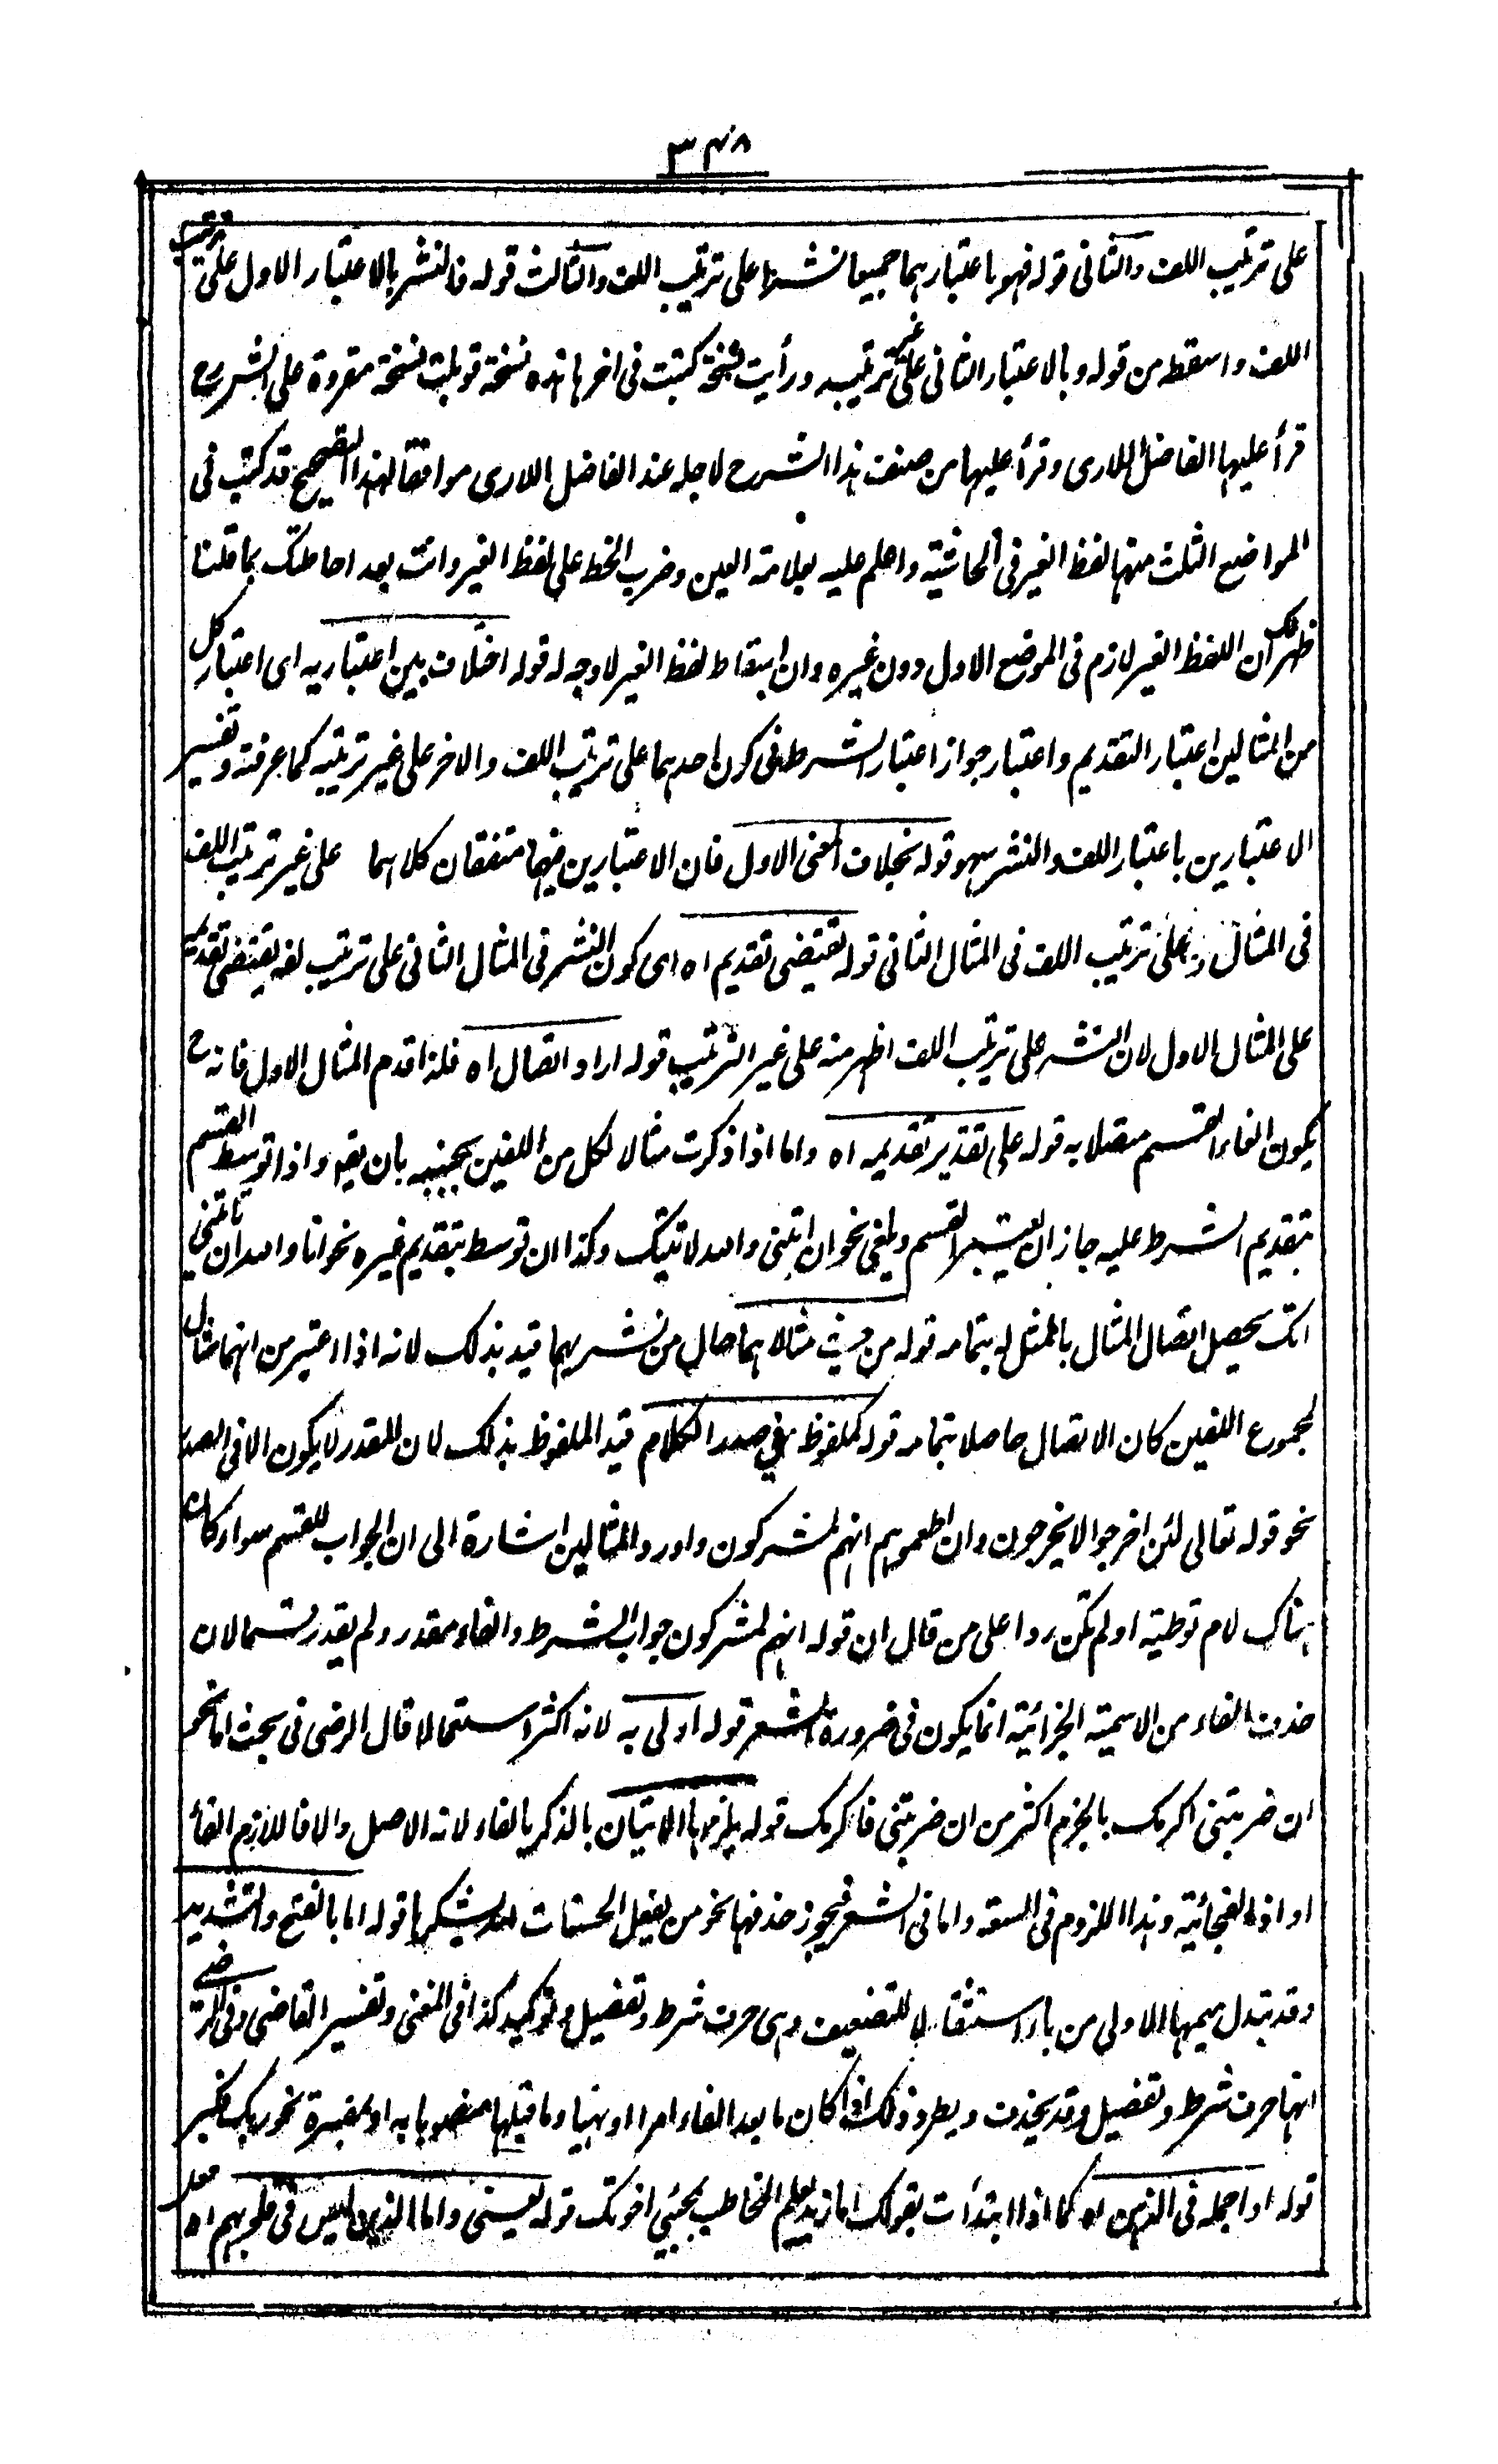 ٣٤٨
على ترتيب اللف والثانى قوله فهو باعتبارهما جميعا نشرها على ترتيب اللف والثالث قوله فالنشر بالاعتبار الاول على ترتيب
اللف واسقط من قوله وبالاعتبار الثانى على غير ترتيبه ورأيت نسخة كتبت فى اخرها هذه نسخة قوبلت بنسخة مقروة على الشرح
قرأ عليها الفاضل اللارى وقرأ عليها من صنف هذا الشرح لاجله عند الفاضل اللارى موافقا لهذا التصحيح قد كتب فى
المواضع الثلث منها لفظ الغير فى الحاشية واعلم عليه بعلامة العين وضرب الخط على لفظ الغير وانت بعد احاطتك بما قلنا
ظهر لك ان اللفظ الغير لازم فى الموضع الاول دون غيره وان اسقاط لفظ الغير لا وجه له قوله اختلاف بين اعتباريه اى اعتبار كل
من المثالين اعتبار التقديم واعتبار جواز اعتبار الشرط فى كون احدهما على ترتيب اللف والاخر على غير ترتيبه كما عرفته وتفسير
الاعتبارين باعتبار اللف والنشر سهو قوله بخلاف المعنى الاول فان الاعتبارين فيهما متفقان كلاهما على غير ترتيب اللف
فى المثال وعلى ترتيب اللف فى المثال الثانى قوله تقتضى تقديم اه اى كون النشر فى المثال الثانى على ترتيب لفه يقتضى تقديمه
على المثال الاول لان النشر على ترتيب اللف اظهر منه على غير الترتيب قوله اراد اتصال اه فلذا قدم المثال الاول فانه ح
يكون الغاء القسم متصلا به قوله على تقدير تقديمه اه واما اذا ذكرت مثالا لكل من اللفين بجنبه بان يقو واذا توسط القسم
بتقديم الشرط عليه جاز ان يعتبر القسم ويلغى نحو ان اتيتنى والله لاتيتك وكذا ان توسط بتقديم غيره نحو انا والله ان تأتنى
اتك يحصل اتصال المثال بالممثل له بتمامه قوله من حيث مثالاهما حال من نشريهما قيد بذلك لانه اذا اعتبر من انهما مثال
لمجموع اللفين كان الاتصال حاصلا بتمامه قوله كملفوظ فى صدر الكلام قيد الملفوظ بذلك لان المقدر لا يكون الا فى الصدر
نحو قوله تعالى لئن اخرجوا لا يخرجون وان اطعموهم انهم لمشركون واورد المثالين اشارة الى ان الجواب للقسم سواء كان
هناك لام توطية او لم تكن ردا على من قال ان قوله انهم لمشركون جواب الشرط والفاء مقدر ولم يقدر قسما لان
حذف الفاء من الاسمية الجزائية انما يكون فى ضرورة الشعر قوله اولى به لانه اكثر استعمالا قال الرضى فى بحث اما نحو
ان ضربتنى اكرمك بالجزم اكثر من ان ضربتنى فاكرمك قوله يلزمها الاتيان بالذكر بالفاء لانه الاصل والا فاللازم الفاء
او اذا الفجائية وهذا اللزوم فى السعة واما فى الشعر فيجوز حذفها نحو من يفعل الحسنات الله يشكرها قوله اما بالفتح والتشديد
وقد تبدل ميمها الاولى من ياء استثقالا للتضعيف وهى حرف شرط وتفصيل وتوكيد كذا فى المغنى وتفسير القاضى وفى الرضى
انها حرف شرط وتفصيل وقد يحذف ويطرد ذلك اذا كان ما بعد الفاء امرا او نهيا وما قبلها منصوبا به او بمفسرة نحو ربك فكبر
قوله او اجمله فى الذهن اه كما اذا ابتدأت بقولك اما زيد لعلم المخاطب بمجيئ اخوتك قوله يستغنى واما الذين ليس فى قلوبهم اه